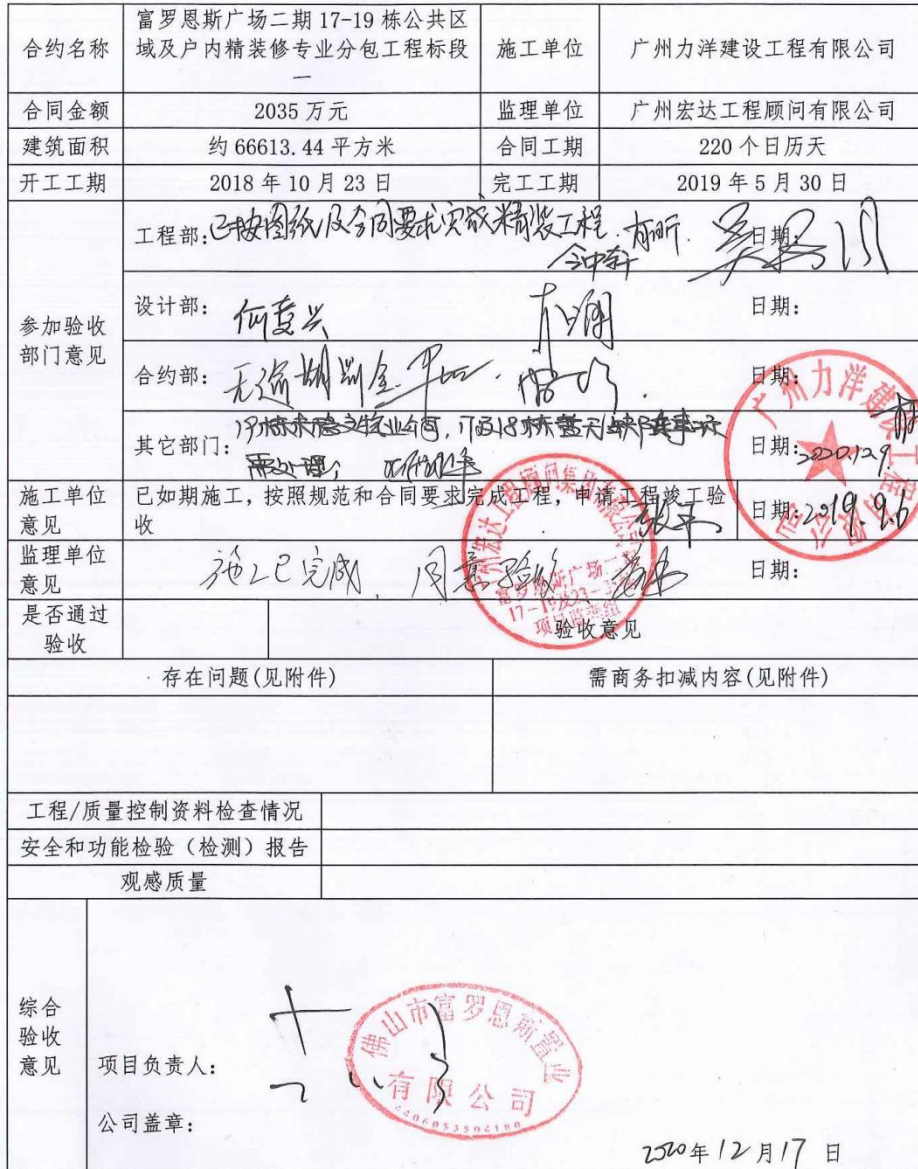 合约名称
富罗恩斯广场二期 17-19 栋公共区
域及户内精装修专业分包工程标段
一
施工单位
广州力洋建设工程有限公司
合同金额
2035 万元
监理单位
广州宏达工程顾问有限公司
建筑面积
约 66613.44 平方米
合同工期
220 个日历天
开工工期
2018 年 10 月 23 日
完工工期
2019 年 5 月 30 日
参加验收
部门意见
工程部:已按图纸及合同要求完成精装工程.
日期:
设计部:
日期:
合约部:
日期:
其它部门:
日期:2020.12.9
施工单位
意见
已如期施工,按照规范和合同要求完成工程,申请工程竣工验
收
日期:2019.9.6
广州力洋建设工程有限公司
监理单位
意见
施工已完成,同意验收
日期:
是否通过
验收
验收意见
存在问题(见附件)
需商务扣减内容(见附件)
工程/质量控制资料检查情况
安全和功能检验(检测)报告
观感质量
综合
验收
意见
项目负责人:
公司盖章:
佛山市富罗恩斯置业
有限公司
2020年12月17日